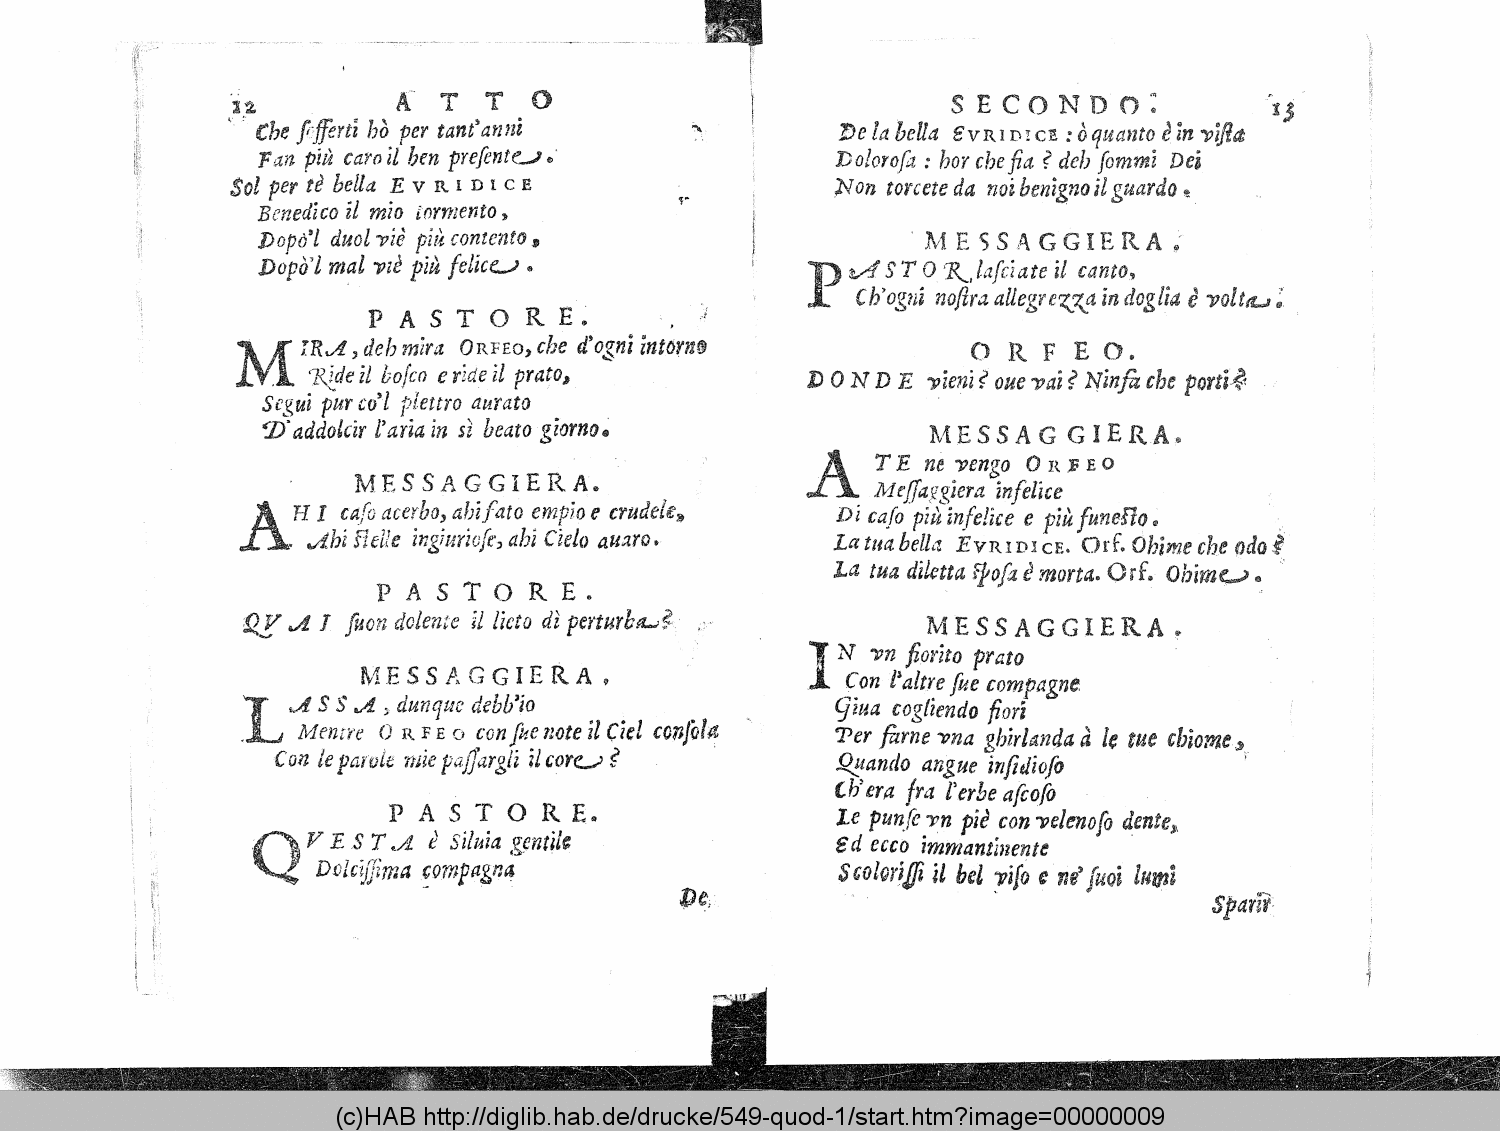 12 ATTO
Che ſofferti hò per tant'anni
Fan più caro il ben preſente.
Sol per tè bella EVRIDICE
Benedico il mio tormento,
Dopò'l duol viè più contento,
Dopò'l mal viè più felice.
PASTORE.
MIRA, deh mira ORFEO, che d'ogni intorno
Ride il boſco e ride il prato,
Segui pur co'l plettro aurato
D'addolcir l'aria in sì beato giorno.
MESSAGGIERA.
AHI caſo acerbo, ahi fato empio e crudele,
Ahi ſtelle ingiurioſe, ahi Cielo auaro.
PASTORE.
QVAI ſuon dolente il lieto dì perturba?
MESSAGGIERA,
LASSA, dunque debb'io
Mentre ORFEO con ſue note il Ciel conſola
Con le parole mie paſſargli il core?
PASTORE.
QVESTA è Siluia gentile
Dolciſſima compagna
De
SECONDO. 13
De la bella EVRIDICE: ò quanto è in viſta
Doloroſa: hor che fia? deh ſommi Dei
Non torcete da noi benigno il guardo.
MESSAGGIERA.
PASTOR, laſciate il canto,
Ch'ogni noſtra allegrezza in doglia è volta.
ORFEO.
DONDE vieni? oue vai? Ninfa che porti?
MESSAGGIERA.
A TE ne vengo ORFEO
Meſſaggiera infelice
Di caſo più infelice e più funeſto.
La tua bella EVRIDICE. Orf. Ohime che odo?
La tua diletta ſpoſa è morta. Orf. Ohime.
MESSAGGIERA.
IN vn fiorito prato
Con l'altre ſue compagne
Giua cogliendo fiori
Per farne vna ghirlanda à le tue chiome,
Quando angue inſidioſo
Ch'era fra l'erbe aſcoſo
Le punſe vn piè con velenoſo dente,
Ed ecco immantinente
Scoloriſſi il bel viſo e ne' ſuoi lumi
Sparir
(c)HAB http://diglib.hab.de/drucke/549-quod-1/start.htm?image=00000009